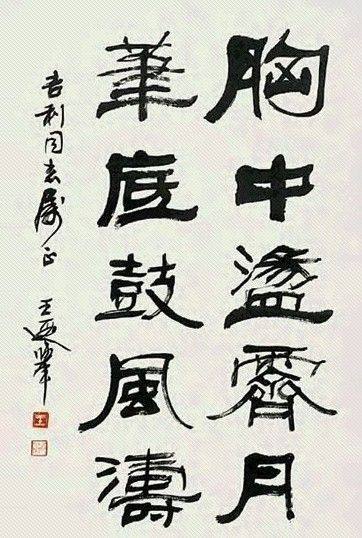 胸中盪霽月
筆底鼓風濤
吉利同志屬正 王遐舉
王